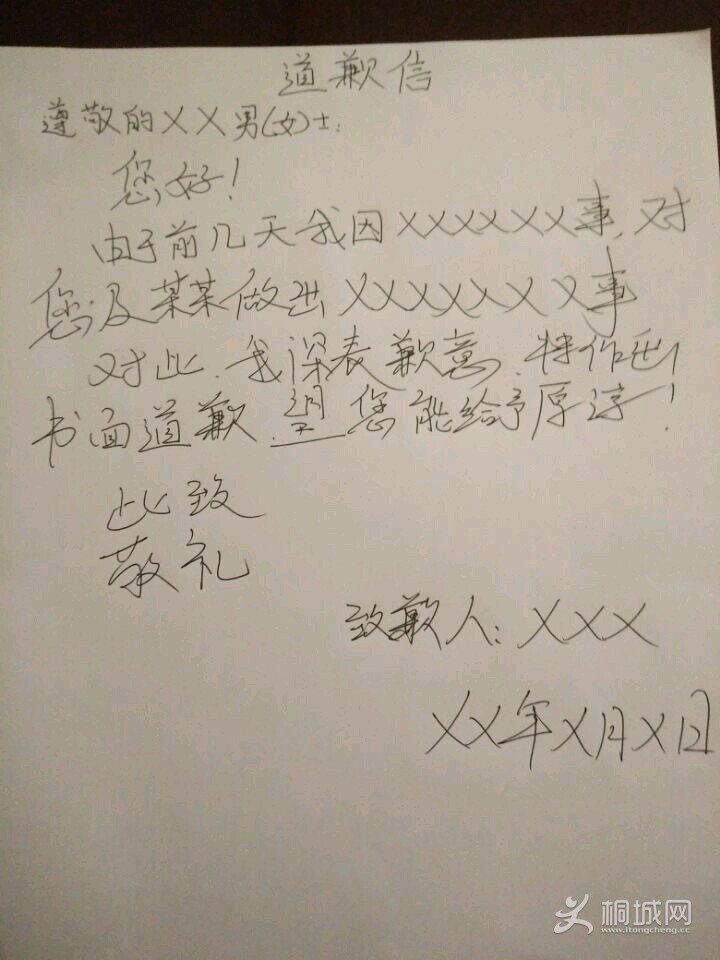 道歉信
遵敬的XX男(女)士:
您好!
由于前几天我因XXXXXX事,对
您及某某做出XXXXXXX事
对此,我深表歉意,特作出
书面道歉,望您能给予厚谅!
此致
敬礼
致歉人:XXX
XX年X月X日
桐城网
www.itongcheng.cc